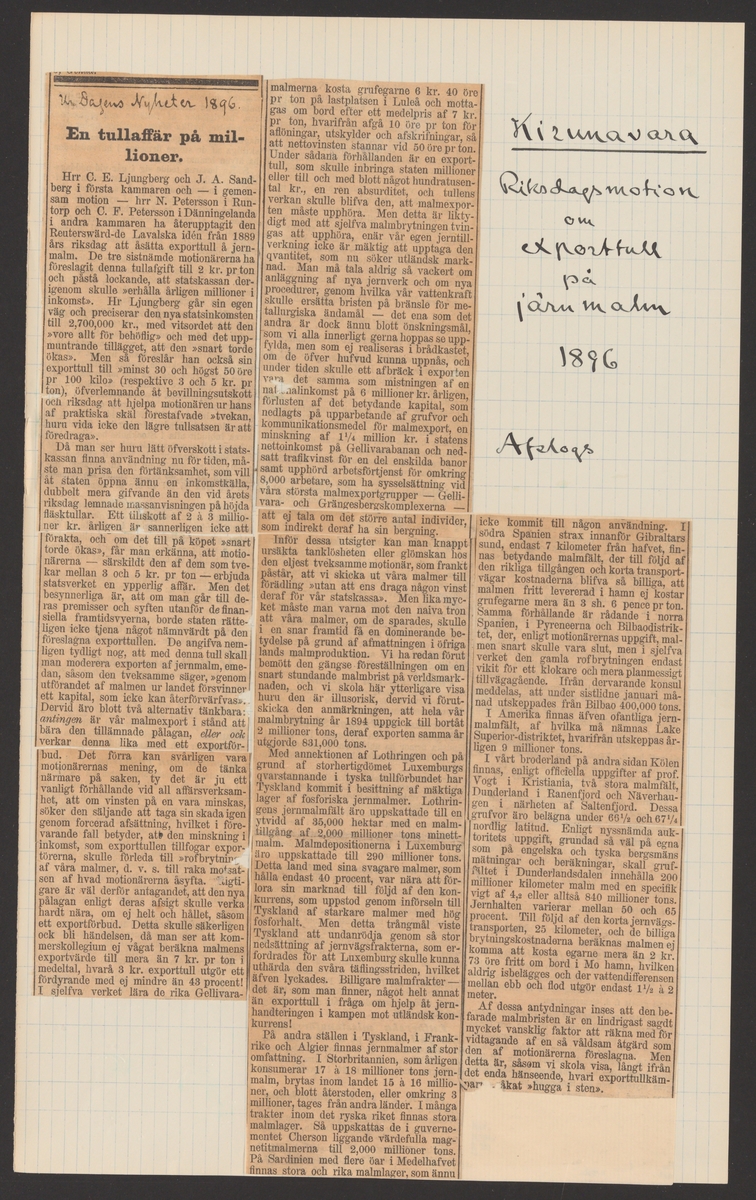 Ur Dagens Nyheter 1896.
En tullaffär på mil-
lioner.
Hrr C. E. Ljungberg och J. A. Sand-
berg i första kammaren och — i gemen-
sam motion — hrr N. Petersson i Run-
torp och C. F. Petersson i Dänningelanda
i andra kammaren ha återupptagit den
Reuterswärd-de Lavalska idén från 1889
års riksdag att åsätta exporttull å jern-
malm. De tre sistnämde motionärerna ha
föreslagit denna tullafgift till 2 kr. pr ton
och påstå lockande, att statskassan der-
igenom skulle »erhålla årligen millioner i
inkomst». Hr Ljungberg går sin egen
väg och preciserar den nya statsinkomsten
till 2,700,000 kr., med vitsordet att den
»vore allt för behöflig» och med det upp-
muntrande tillägget, att den »snart torde
ökas». Men så föreslår han också sin
exporttull till »minst 30 och högst 50 öre
pr 100 kilo» (respektive 3 och 5 kr. pr
ton), öfverlemnande åt bevillningsutskott
och riksdag att hjelpa motionären ur hans
af praktiska skäl förestafvade »tvekan,
huru vida icke den lägre tullsatsen är att
föredraga».
Då man ser huru lätt öfverskott i stats-
kassan finna användning nu för tiden, må-
ste man prisa den förtänksamhet, som vill
åt staten öppna ännu en inkomstkälla,
dubbelt mera gifvande än den vid årets
riksdag lemnade massanvisningen på höjda
fläsktullar. Ett tillskott af 2 à 3 millio-
ner kr. årligen är sannerligen icke att
förakta, och om det till på köpet »snart
torde ökas», får man erkänna, att motio-
närerna — särskildt den af dem som tve-
kar mellan 3 och 5 kr. pr ton — erbjuda
statsverket en ypperlig affär. Men det
besynnerliga är, att om man går till de-
ras premisser och syften utanför de finan-
siella framtidsvyerna, borde staten rätte-
ligen icke tjena något nämnvärdt på den
föreslagna exporttullen. De angifva nem-
ligen tydligt nog, att med denna tull skall
man moderera exporten af jernmalm, eme-
dan, såsom den tveksamme säger, »genom
utförandet af malmen ur landet försvinner
ett kapital, som icke kan återförvärfvas».
Dervid äro blott två alternativ tänkbara:
antingen är vår malmexport i stånd att
bära den tillämnade pålagan, eller ock
verkar denna lika med ett exportför-
bud. Det förra kan svårligen vara
motionärernas mening, om de tänka
närmare på saken, ty det är ju ett
vanligt förhållande vid all affärsverksam-
het, att om vinsten på en vara minskas,
söker den säljande att taga sin skada igen
genom forcerad afsättning, hvilket i före-
varande fall betyder, att den minskning i
inkomst, som exporttullen tillfogar expor-
törerna, skulle förleda till »rofbrytning»
af våra malmer, d. v. s. till raka motsat-
sen af hvad motionärerna åsyfta. Rigti-
gare är väl derför antagandet, att den nya
pålagan enligt deras afsigt skulle verka
hardt nära, om ej helt och hållet, såsom
ett exportförbud. Detta skulle säkerligen
ock bli händelsen, då man ser att kom-
merskollegium ej vågat beräkna malmens
exportvärde till mera än 7 kr. pr ton i
medeltal, hvarå 3 kr. exporttull utgör ett
fördyrande med ej mindre än 43 procent!
I sjelfva verket lära de rika Gellivara-
malmerna kosta grufegarne 6 kr. 40 öre
pr ton på lastplatsen i Luleå och motta-
gas om bord efter ett medelpris af 7 kr.
pr ton, hvarifrån afgå 10 öre pr ton för
aflöningar, utskylder och afskrifningar, så
att nettovinsten stannar vid 50 öre pr ton.
Under sådana förhållanden är en export-
tull, som skulle inbringa staten millioner
eller till och med blott något hundratusen-
tal kr., en ren absurditet, och tullens
verkan skulle blifva den, att malmexpor-
ten måste upphöra. Men detta är liktydigt-
digt med att sjelfva malmbrytningen tvin-
gas att upphöra, enär vår egen jerntill-
verkning icke är mäktig att upptaga den
qvantitet, som nu söker utländsk mark-
nad. Man må tala aldrig så vackert om
anläggning af nya jernverk och om nya
procedurer, genom hvilka vår vattenkraft
skulle ersätta bristen på bränsle för me-
tallurgiska ändamål — det ena som det
andra är dock ännu blott önskningsmål,
som vi alla innerligt gerna hoppas se upp-
fylda, men som ej realiseras i brådkastet,
om de öfver hufvud kunna uppnås, och
under tiden skulle ett afbräck i exporten
vara det samma som mistningen af en
nationalinkomst på 6 millioner kr. årligen,
förlusten af det betydande kapital, som
nedlagts på upparbetande af grufvor och
kommunikationsmedel för malmexport, en
minskning af 1¼ million kr. i statens
nettoinkomst på Gellivarabanan och ned-
satt trafikvinst för en del enskilda banor
samt upphörd arbetsförtjenst för omkring
8,000 arbetare, som ha sysselsättning vid
våra största malmexportgrupper — Gelli-
vara- och Grängesbergskomplexerna —
att ej tala om det större antal individer,
som indirekt deraf ha sin bergning.
Inför dessa utsigter kan man knappt
ursäkta tanklösheten eller glömskan hos
den eljest tveksamme motionär, som frankt
påstår, att vi skicka ut våra malmer till
förädling »utan att ens draga någon vinst
deraf för vår statskassa». Men lika myc-
ket måste man varna mot den naiva tron
att våra malmer, om de sparades, skulle
i en snar framtid få en dominerande be-
tydelse på grund af afmattning i öfriga
lands malmproduktion. Vi ha redan förut
bemött den gängse föreställningen om en
snart stundande malmbrist på verldsmark-
naden, och vi skola här ytterligare visa
huru den är illusorisk, dervid vi förut-
skicka den anmärkningen, att hela vår
malmbrytning år 1894 uppgick till bortåt
2 millioner tons, deraf exporten samma år
utgjorde 831,000 tons.
Med annektionen af Lothringen och på
grund af storhertigdömet Luxemburgs
qvarstannande i tyska tullförbundet har
Tyskland kommit i besittning af mäktiga
lager af fosforiska jernmalmer. Lothrin-
gens jernmalmfält äro uppskattade till en
ytvidd af 35,000 hektar med en malm-
tillgång af 2,000 millioner tons minett-
malm. Malmdepositionerna i Luxemburg
äro uppskattade till 290 millioner tons.
Detta land med sina svagare malmer, som
hålla endast 40 procent, var nära att för-
lora sin marknad till följd af den kon-
kurrens, som uppstod genom införseln till
Tyskland af starkare malmer med hög
fosforhalt. Men detta trångmål visste
Tyskland att undanrödja genom så stor
nedsättning af jernvägsfrakterna, som er-
fordrades för att Luxemburg skulle kunna
uthärda den svåra täflingsstriden, hvilket
äfven lyckades. Billigare malmfrakter —
det är, som man finner, något helt annat
än exporttull i fråga om hjelp åt jern-
handteringen i kampen mot utländsk kon-
kurrens!
På andra ställen i Tyskland, i Frank-
rike och Algier finnas jernmalmer af stor
omfattning. I Storbritannien, som årligen
konsumerar 17 à 18 millioner tons jern-
malm, brytas inom landet 15 à 16 millio-
ner, och blott återstoden, eller omkring 3
millioner, tages från andra länder. I många
trakter inom det ryska riket finnas stora
malmlager. Så uppskattas de i guverne-
mentet Cherson liggande värdefulla mag-
netitmalmerna till 2,000 millioner tons.
På Sardinien med flere öar i Medelhafvet
finnas stora och rika malmlager, som ännu
icke kommit till någon användning. I
södra Spanien strax innanför Gibraltars
sund, endast 7 kilometer från hafvet, fin-
nas betydande malmfält, der till följd af
den rikliga tillgången och korta transport-
vägar kostnaderna blifva så billiga, att
malmen fritt levererad i hamn ej kostar
grufegarne mera än 3 sh. 6 pence pr ton.
Samma förhållande är rådande i norra
Spanien, i Pyreneerna och Bilbaodistrik-
tet, der, enligt motionärernas uppgift, mal-
men snart skulle vara slut, men i sjelfva
verket den gamla rofbrytningen endast
vikit för ett klokare och mera planmessigt
tillvägagående. Ifrån dervarande konsul
meddelas, att under sistlidne januari må-
nad utskeppades från Bilbao 400,000 tons.
I Amerika finnas äfven ofantliga jern-
malmfält, af hvilka må nämnas Lake
Superior-distriktet, hvarifrån utskeppas år-
ligen 9 millioner tons.
I vårt broderland på andra sidan Kölen
finnas, enligt officiella uppgifter af prof.
Vogt i Kristiania, två stora malmfält,
Dunderland i Ranenfjord och Näverhau-
gen i närheten af Saltenfjord. Dessa
grufvor äro belägna under 66½ och 67¼
nordlig latitud. Enligt nyssnämda auk-
toritets uppgift, grundad så väl på egna
som på engelska och tyska bergsmäns
mätningar och beräkningar, skall gruf-
fältet i Dunderlandsdalen innehålla 200
millioner kilometer malm med en specifik
vigt af 4,2 eller alltså 840 millioner tons.
Jernhalten varierar mellan 50 och 65
procent. Till följd af den korta jernvägs-
transporten, 25 kilometer, och de billiga
brytningskostnaderna beräknas malmen ej
komma att kosta egarne mera än 2 kr.
73 öre fritt om bord i Mo hamn, hvilken
aldrig isbelägges och der vattendifferensen
mellan ebb och flod utgör endast 1½ à 2
meter.
Af dessa antydningar inses att den be-
farade malmbristen är en lindrigast sagdt
mycket vansklig faktor att räkna med för
vidtagande af en så våldsam åtgärd som
den af motionärerna föreslagna. Men
detta är, såsom vi skola visa, långt ifrån
det enda hänseende, hvari exporttullkäm-
åkat »hugga i sten».
Kirunavara
Riksdagsmotion
om
exporttull
på
järnmalm
1896
Afslogs